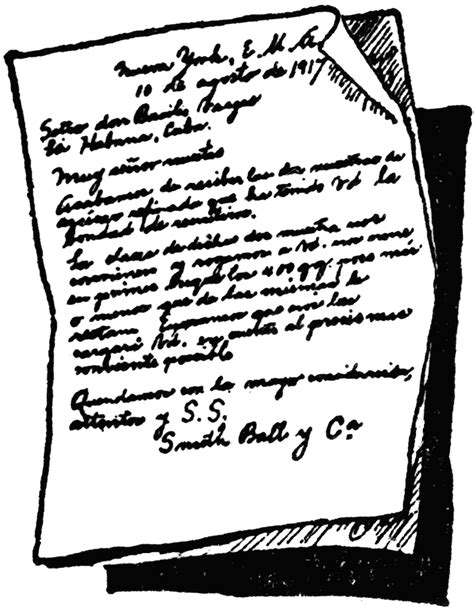 Nueva York, E. U. A.
10 de agosto de 1917
Señor don Basilio Vargas
La Habana, Cuba.
Muy señor nuestro
Acabamos de recibir las dos muestras de
azúcar refinado que ha tenido Vd la
bondad de remitirnos.
La clase de dichas dos muestras nos
conviene y rogamos a Vd. nos
en primer buque los 400 qq. poco más
o menos que de las mismas le
restan. Esperamos que nos las
cargará Vd. en cuenta al precio mas
conveniente posible
Quedamos con la mayor consideración,
atentos y S. S.
Smith Ball y Ca